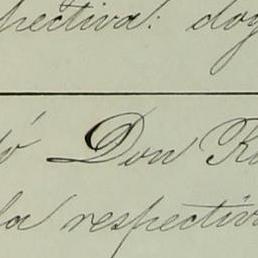 pectiva: doy
ó Don Ra
la respectiva